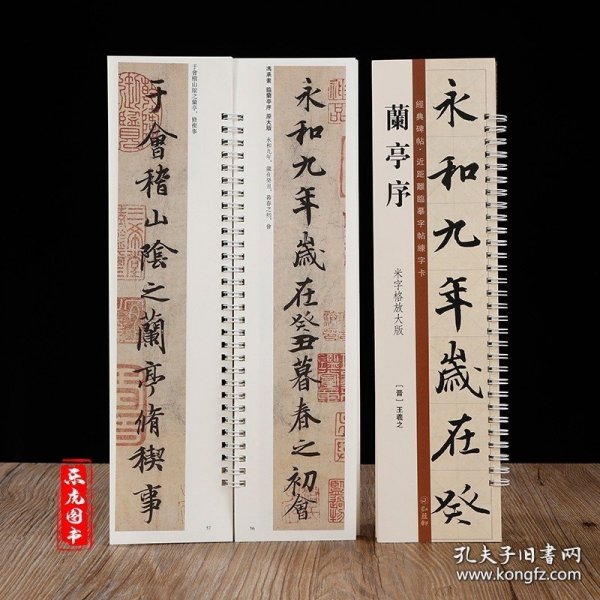 永和九年歲在癸
經典碑帖·近距離臨摹字帖練字卡
蘭亭序
米字格放大版
[晋]王羲之
弘蕴轩
馮承素 臨蘭亭序 原大版 永和九年，歲在癸丑，暮春之初，會
永和九年歲在癸丑暮春之初會
96
于會稽山陰之蘭亭，脩稧事
于會稽山陰之蘭亭脩稧事
97
乐虎图书
孔夫子旧书网
www.kongfz.com